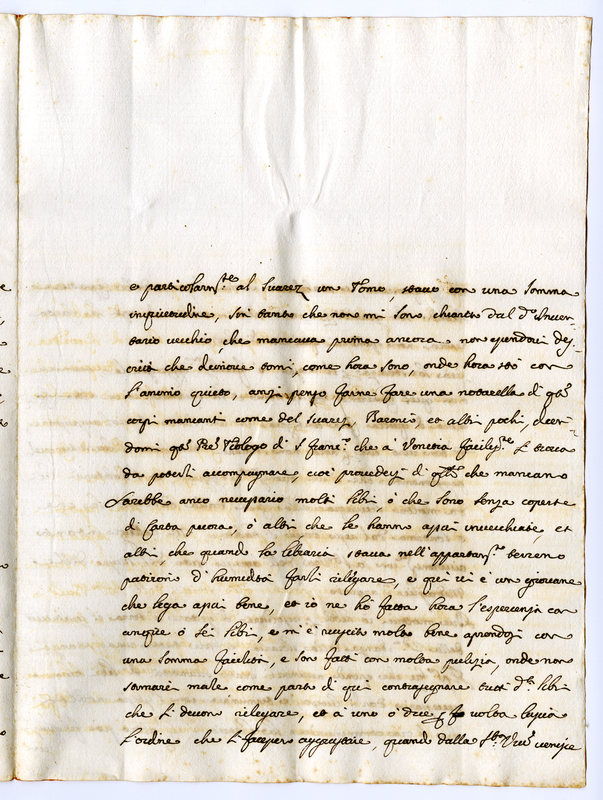 e particolarm.te al Suarez un Tomo, stavo con una somma
inquietudine, sin tanto che non mi sono chiarito dal d.o Inven-
tario vecchio, che mancava prima ancora non essendovi des-
critti che decinove tomi, come hora sono, onde hora stò con
l'animo quieto, anzi penso farne fare una notarella di q.ti
corpi mancanti come del Suarez, Baronio, et altri pochi, dicen-
domi q.to Teologo di S. Franc.o che à Venetia
da poterli accompagnare, cioè provedersi di q.lli che mancano
Sarebbe anco necessario molti libri, ò che sono senza coperte
di Carta pecora, ò altri che le hanno assai invecchiate, et
altri, che quando la libraria stava nell'appartam.to terreno
patirono d'humidità farli rilegare, e qui vi è un giovane
che lega assai bene, et io ne hò fatta hora l'esperienza con
cinque ò sei libri, e mi è riuscita molto bene aprendosi con
una somma facilità, e son fatti con molta pulizia, onde non
sarà male come parto di qui contrasegnare tutti d.i libri
che si devono rilegare, et à uno ò due p volta
l'ordine che si facessero aggiustare, quando dalla venisse